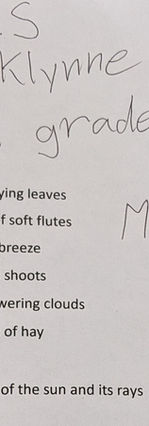 S
klynne
grade
ying leaves
f soft flutes
M
breeze
shoots
wering clouds
of hay
of the sun and its rays